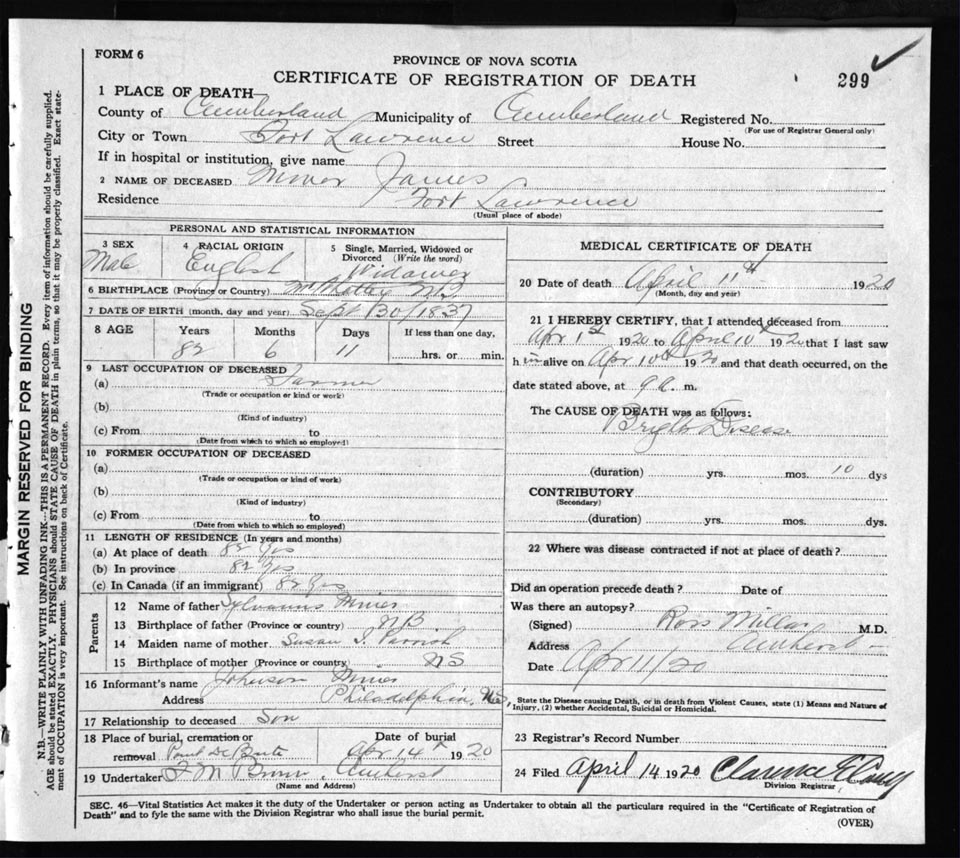 FORM 6
PROVINCE OF NOVA SCOTIA
CERTIFICATE OF REGISTRATION OF DEATH
299
1 PLACE OF DEATH—
County of Cumberland Municipality of Cumberland Registered No.
(For use of Registrar General only)
City or Town Fort Lawrence Street House No.
If in hospital or institution, give name
2 NAME OF DECEASED James
Residence Fort Lawrence
(Usual place of abode)
PERSONAL AND STATISTICAL INFORMATION
3 SEX 4 RACIAL ORIGIN 5 Single, Married, Widowed or Divorced (Write the word)
Male English Widower
6 BIRTHPLACE (Province or Country)
7 DATE OF BIRTH (month, day and year) Sept 30/1837
8 AGE Years Months Days If less than one day,
82 6 11 hrs. or min.
9 LAST OCCUPATION OF DECEASED
(a) Farmer
(Trade or occupation or kind or work)
(b)
(Kind of industry)
(c) From to
(Date from which to which so employed)
10 FORMER OCCUPATION OF DECEASED
(a)
(Trade or occupation or kind of work)
(b)
(Kind of industry)
(c) From to
(Date from which to which so employed)
11 LENGTH OF RESIDENCE (In years and months)
(a) At place of death 82 yrs
(b) In province 82 yrs
(c) In Canada (if an immigrant) 82 yrs
Parents
12 Name of father
13 Birthplace of father (Province or country) NB
14 Maiden name of mother Susan
15 Birthplace of mother (Province or country NS
16 Informant's name Johnson
Address Philadelphia,
17 Relationship to deceased Son
18 Place of burial, cremation or removal Point De Bute Date of burial Apr 14 1920
19 Undertaker Amherst
(Name and Address)
MEDICAL CERTIFICATE OF DEATH
20 Date of death April 11th 1920
(Month, day and year)
21 I HEREBY CERTIFY, that I attended deceased from
Apr 1st 1920 to April 10 1920 that I last saw
h im alive on Apr 10th 1920 and that death occurred, on the
date stated above, at 9 a. m.
The CAUSE OF DEATH was as follows:
Brights Disease
(duration) yrs. mos. 10 dys
CONTRIBUTORY
(Secondary)
(duration) yrs. mos. dys.
22 Where was disease contracted if not at place of death?
Did an operation precede death? Date of
Was there an autopsy?
(Signed) Ross Millar M.D.
Address Amherst
Date Apr 11/20
State the Disease causing Death, or in death from Violent Causes, state (1) Means and Nature of
Injury, (2) whether Accidental, Suicidal or Homicidal.
23 Registrar's Record Number
24 Filed April 14 1920 Clarence
Division Registrar
SEC. 46—Vital Statistics Act makes it the duty of the Undertaker or person acting as Undertaker to obtain all the particulars required in the "Certificate of Registration of
Death" and to fyle the same with the Division Registrar who shall issue the burial permit.
(OVER)
MARGIN RESERVED FOR BINDING
N.B.—WRITE PLAINLY WITH UNFADING INK—THIS IS A PERMANENT RECORD. Every item of information should be carefully supplied.
AGE should be stated EXACTLY. PHYSICIANS should STATE CAUSE OF DEATH in plain terms, so that it may be properly classified. Exact state-
ment of OCCUPATION is very important. See instructions on back of Certificate.